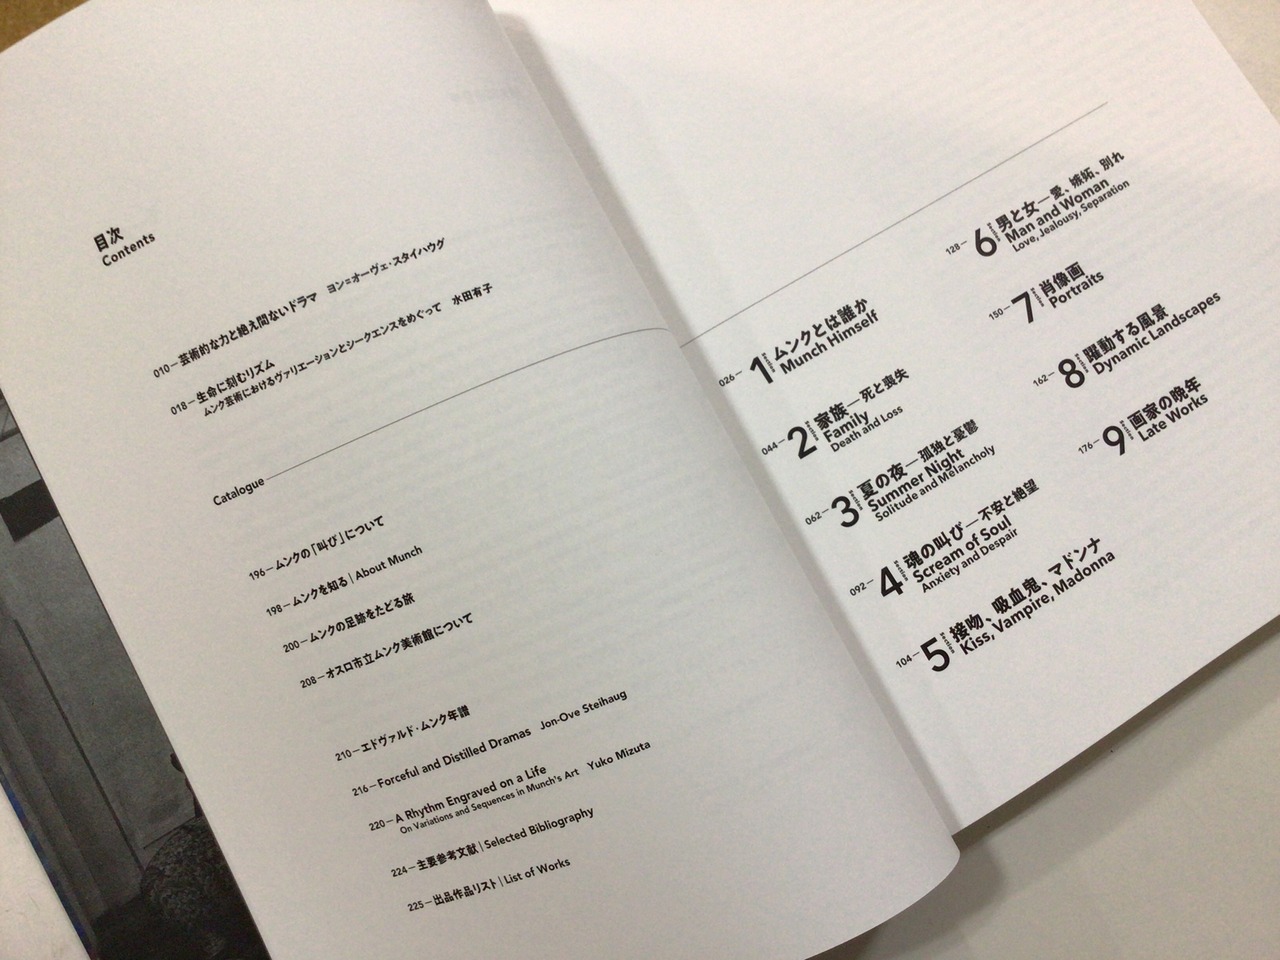 目次
Contents
010—芸術的な力と絶え間ないドラマ ヨン=オーヴェ・スタイハウグ
018—生命に刻むリズム
ムンク芸術におけるヴァリエーションとシークエンスをめぐって 水田有子
Catalogue
196—ムンクの「叫び」について
198—ムンクを知る | About Munch
200—ムンクの足跡をたどる旅
208—オスロ市立ムンク美術館について
210—エドヴァルド・ムンク年譜
216—Forceful and Distilled Dramas Jon-Ove Steihaug
220—A Rhythm Engraved on a Life
On Variations and Sequences in Munch's Art Yuko Mizuta
224—主要参考文献 | Selected Bibliography
225—出品作品リスト | List of Works
026— Section 1 ムンクとは誰か
Munch Himself
044— Section 2 家族—死と喪失
Family
Death and Loss
062— Section 3 夏の夜—孤独と憂鬱
Summer Night
Solitude and Melancholy
092— Section 4 魂の叫び—不安と絶望
Scream of Soul
Anxiety and Despair
104— Section 5 接吻、吸血鬼、マドンナ
Kiss, Vampire, Madonna
128— Section 6 男と女—愛、嫉妬、別れ
Man and Woman
Love, Jealousy, Separation
150— Section 7 肖像画
Portraits
162— Section 8 躍動する風景
Dynamic Landscapes
176— Section 9 画家の晩年
Late Works